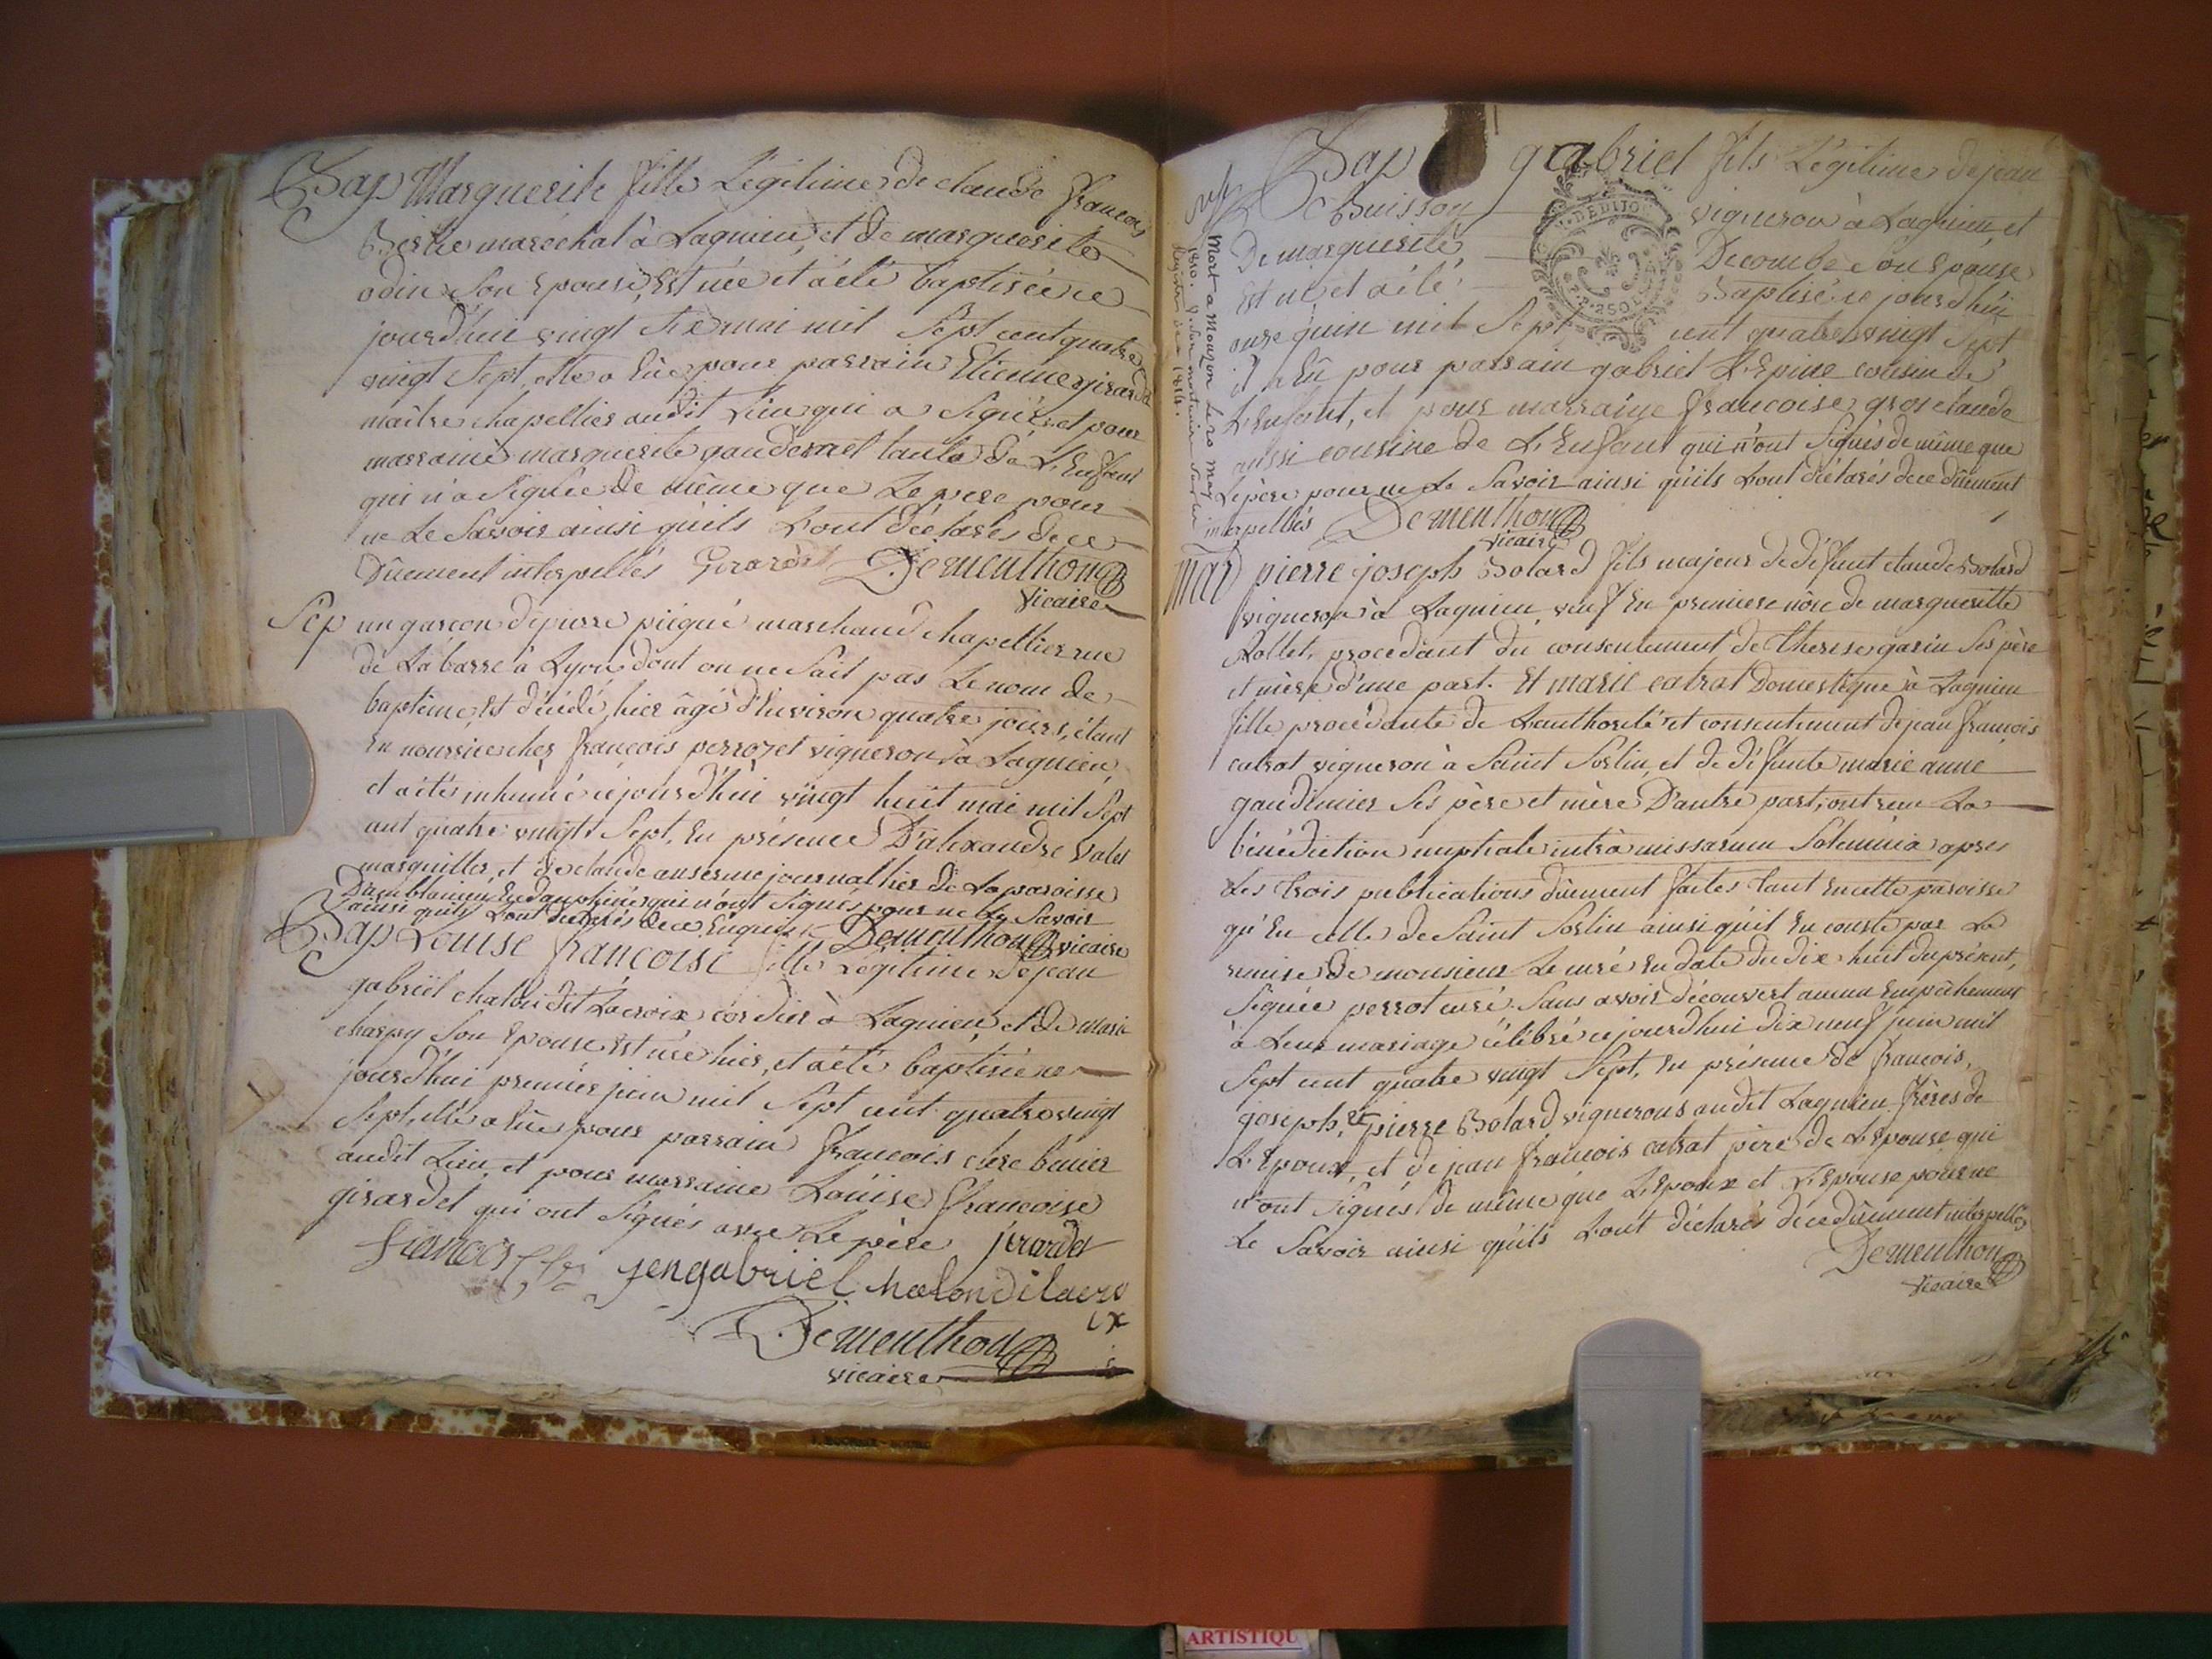 Bap Marguerite fille Légitime de claude françois
maréchal à Lagnieu, et de marguerite
odin Son Epouse, Est née et a été baptisée ce
jourd'hui vingt Six mai mil Sept cent quatre
vingt Sept, elle a Eûe pour parrain Etienne girardet
maître chapellier audit Lieu qui a Signé, et pour
marraine marguerite gaudenet tante de L'Enfant
qui n'a Signée de même que Le pere pour
ne Le Savoir ainsi qu'ils L'ont déclarés de ce
Dûement interpellés Girardet Dementhon
Vicaire
Sep un garcon de pierre marchand chapellier rue
de La barre à Lyon dont on ne Sait pas Le nom de
baptême, Est décédé hier âgé d'Environ quatre jours, étant
En nourrice chez françois perrozet vigneron à Lagnieu,
et a été inhumé ce jourd'hui vingt huit mai mil Sept
cent quatre vingt Sept, En présence D'alexandre Valet
marguiller, et de claude anserme journallier de La paroisse
En dauphiné qui n'ont Signés pour ne Le Savoir
ainsi qu'ils L'ont déclarés de ce Enquis Dementhon vicaire
Bap Louise françoise fille Légitime de jean
gabriel chalon dit Lacroix cordier à Lagnieu, et de marie
charpy Son Epouse Est née hier, et a été baptisée ce
jourd'hui premier juin mil Sept cent quatre vingt
Sept, elle a Eûe pour parrain françois
audit Lieu, et pour marraine Louise françoise
girardet qui ont Signés avec Le père jirardet
francois jengabriel halondilacro
ix
Dementhon
vicaire
Bap gabriel fils Légitime de jean
Buisson vigneron à Lagnieu, et
De marguerite Decombe Son Epouse
Est né et a été Baptisé ce jourd'hui
onze juin mil Sept cent quatre vingt Sept
il a Eû pour parrain gabriel L'Epine cousin de
L'Enfant, et pour marraine françoise grosclaude
aussi cousine de L'Enfant qui n'ont Signés de même que
Le père pour ne Le Savoir ainsi qu'ils L'ont déclarés de ce dûement
interpellés Dementhon
Vicaire
Mort a Mouzon Le 10 May
1810.
Registre de 1814.
mar pierre joseph Bolard fils majeur de défunt claude Bolard
vigneron à Lagnieu, veuf En premiere nôce de marguerite
Rollet, procedant du consentement de therese garin Ses père
et mère d'une part. Et marie catrat Domestique à Lagnieu
fille procédante de L'authorité et consentement de jean françois
catrat vigneron à Saint Sorlin, et de défunte marie anne
gaudemier Ses père et mère D'autre part, ont reçu La
bénédiction nuptiale intrà missarum Solemnia apres
Les trois publications dûement faites tant En cette paroisse
qu'En celle de Saint Sorlin ainsi qu'il En conste par La
remise de monsieur Le curé En date du dix huit du présent,
Signée perrot curé. Sans avoir découvert aucun Empêchement
à Leur mariage célébré ce jourd'hui dix neuf juin mil
Sept cent quatre vingt Sept, En présence de françois,
joseph, et pierre Bolard vignerons audit Lagnieu frères de
L'Epoux, et de jean françois catrat père de L'Epouse qui
n'ont Signés de même que L'Epoux et L'Epouse pour ne
Le Savoir ainsi qu'ils L'ont déclarés de ce dûement interpellés
Dementhon
vicaire
ARTISTIQU